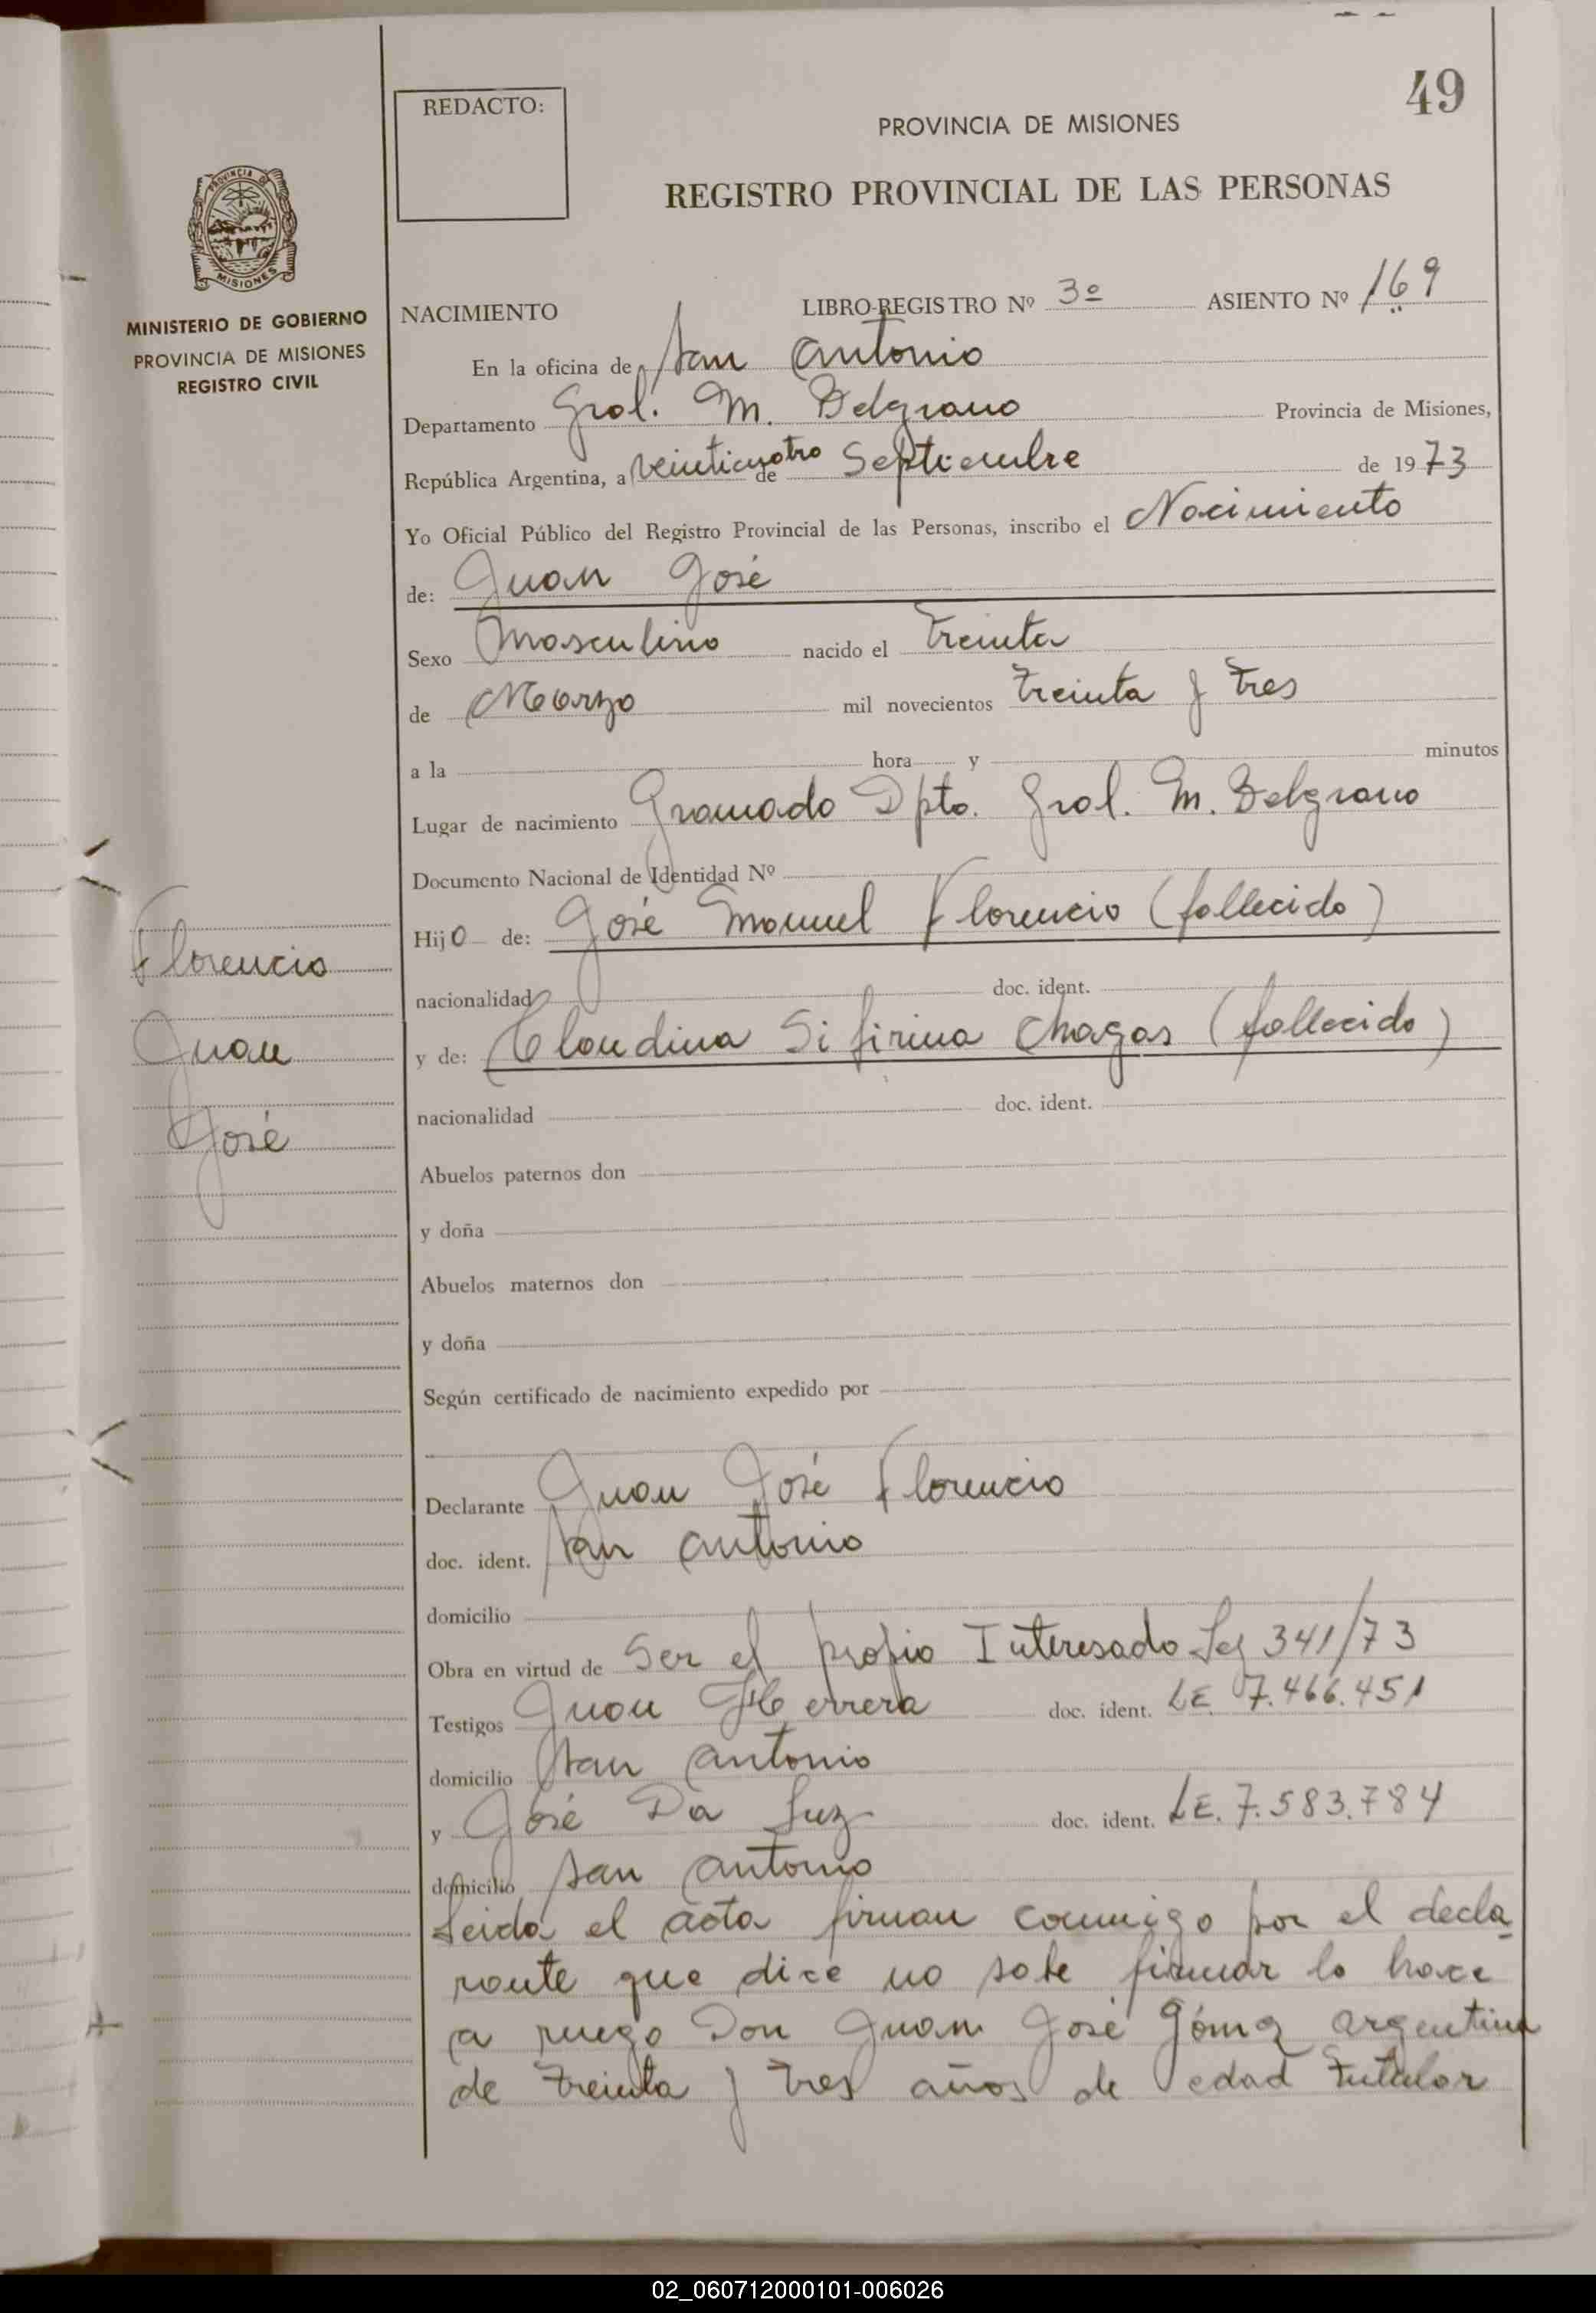 49
REDACTO:
PROVINCIA DE MISIONES
REGISTRO PROVINCIAL DE LAS PERSONAS
PROVINCIA DE
MISIONES
MINISTERIO DE GOBIERNO
PROVINCIA DE MISIONES
REGISTRO CIVIL
NACIMIENTO LIBRO-REGISTRO Nº 3º ASIENTO Nº 169
En la oficina de San Antonio
Departamento Gral. M. Belgrano Provincia de Misiones,
República Argentina, a veinticuatro de Septiembre de 1973
Yo Oficial Público del Registro Provincial de las Personas, inscribo el Nacimiento
de: Juan José
Sexo Masculino nacido el treinta
de Marzo mil novecientos treinta y tres
a la hora y minutos
Lugar de nacimiento Gramado Dpto. Gral. M. Belgrano
Documento Nacional de Identidad Nº
Hijo de: José Manuel Florencio (fallecido)
nacionalidad doc. ident.
y de: Claudina Sifirina Chagas (fallecido)
nacionalidad doc. ident.
Florencio
Juan
José
Abuelos paternos don
y doña
Abuelos maternos don
y doña
Según certificado de nacimiento expedido por
Declarante Juan José Florencio
doc. ident. San Antonio
domicilio
Obra en virtud de Ser el propio Interesado Ley 341/73
Testigos Juan Herrera doc. ident. LE. 7.466.451
domicilio San Antonio
y José Da Luz doc. ident. LE. 7.583.784
domicilio San Antonio
Leida el acta firman conmigo por el decla
rante que dice no sabe firmar lo hace
a ruego Don Juan José Gómez argentino
de treinta y tres años de edad titular
02_060712000101-006026